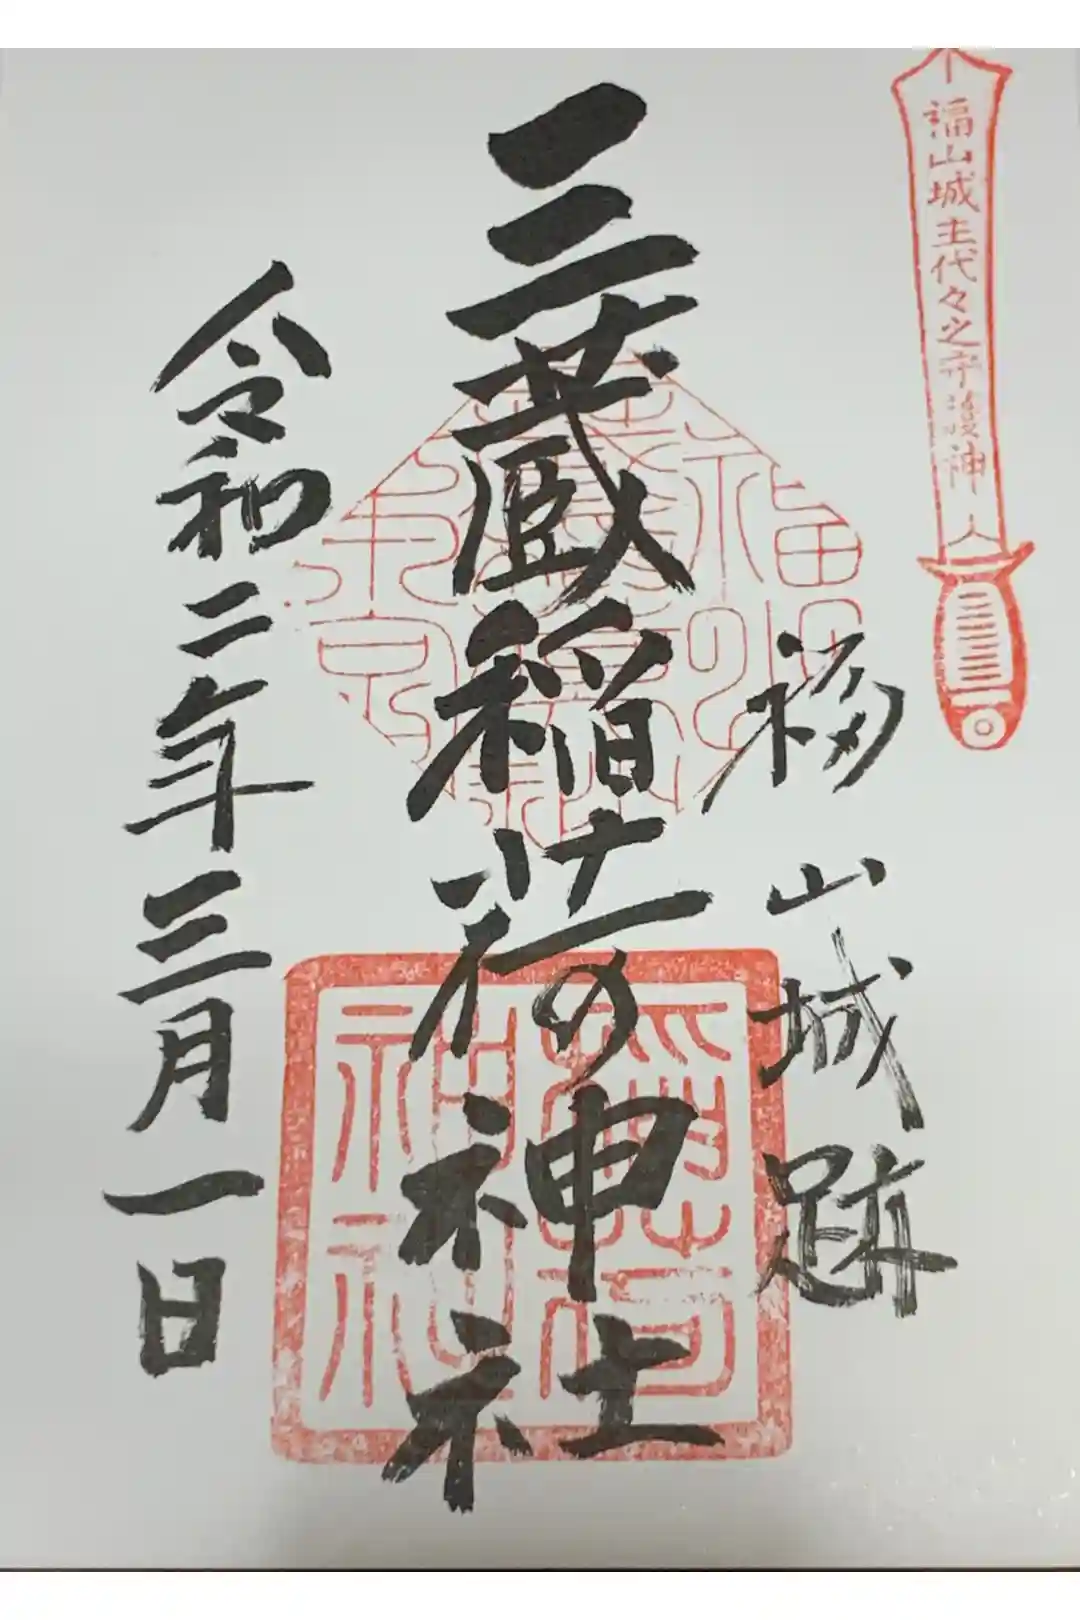 福山城主代々之守護神
福山城跡
三蔵稲荷神社
令和二年三月一日
稲荷神社